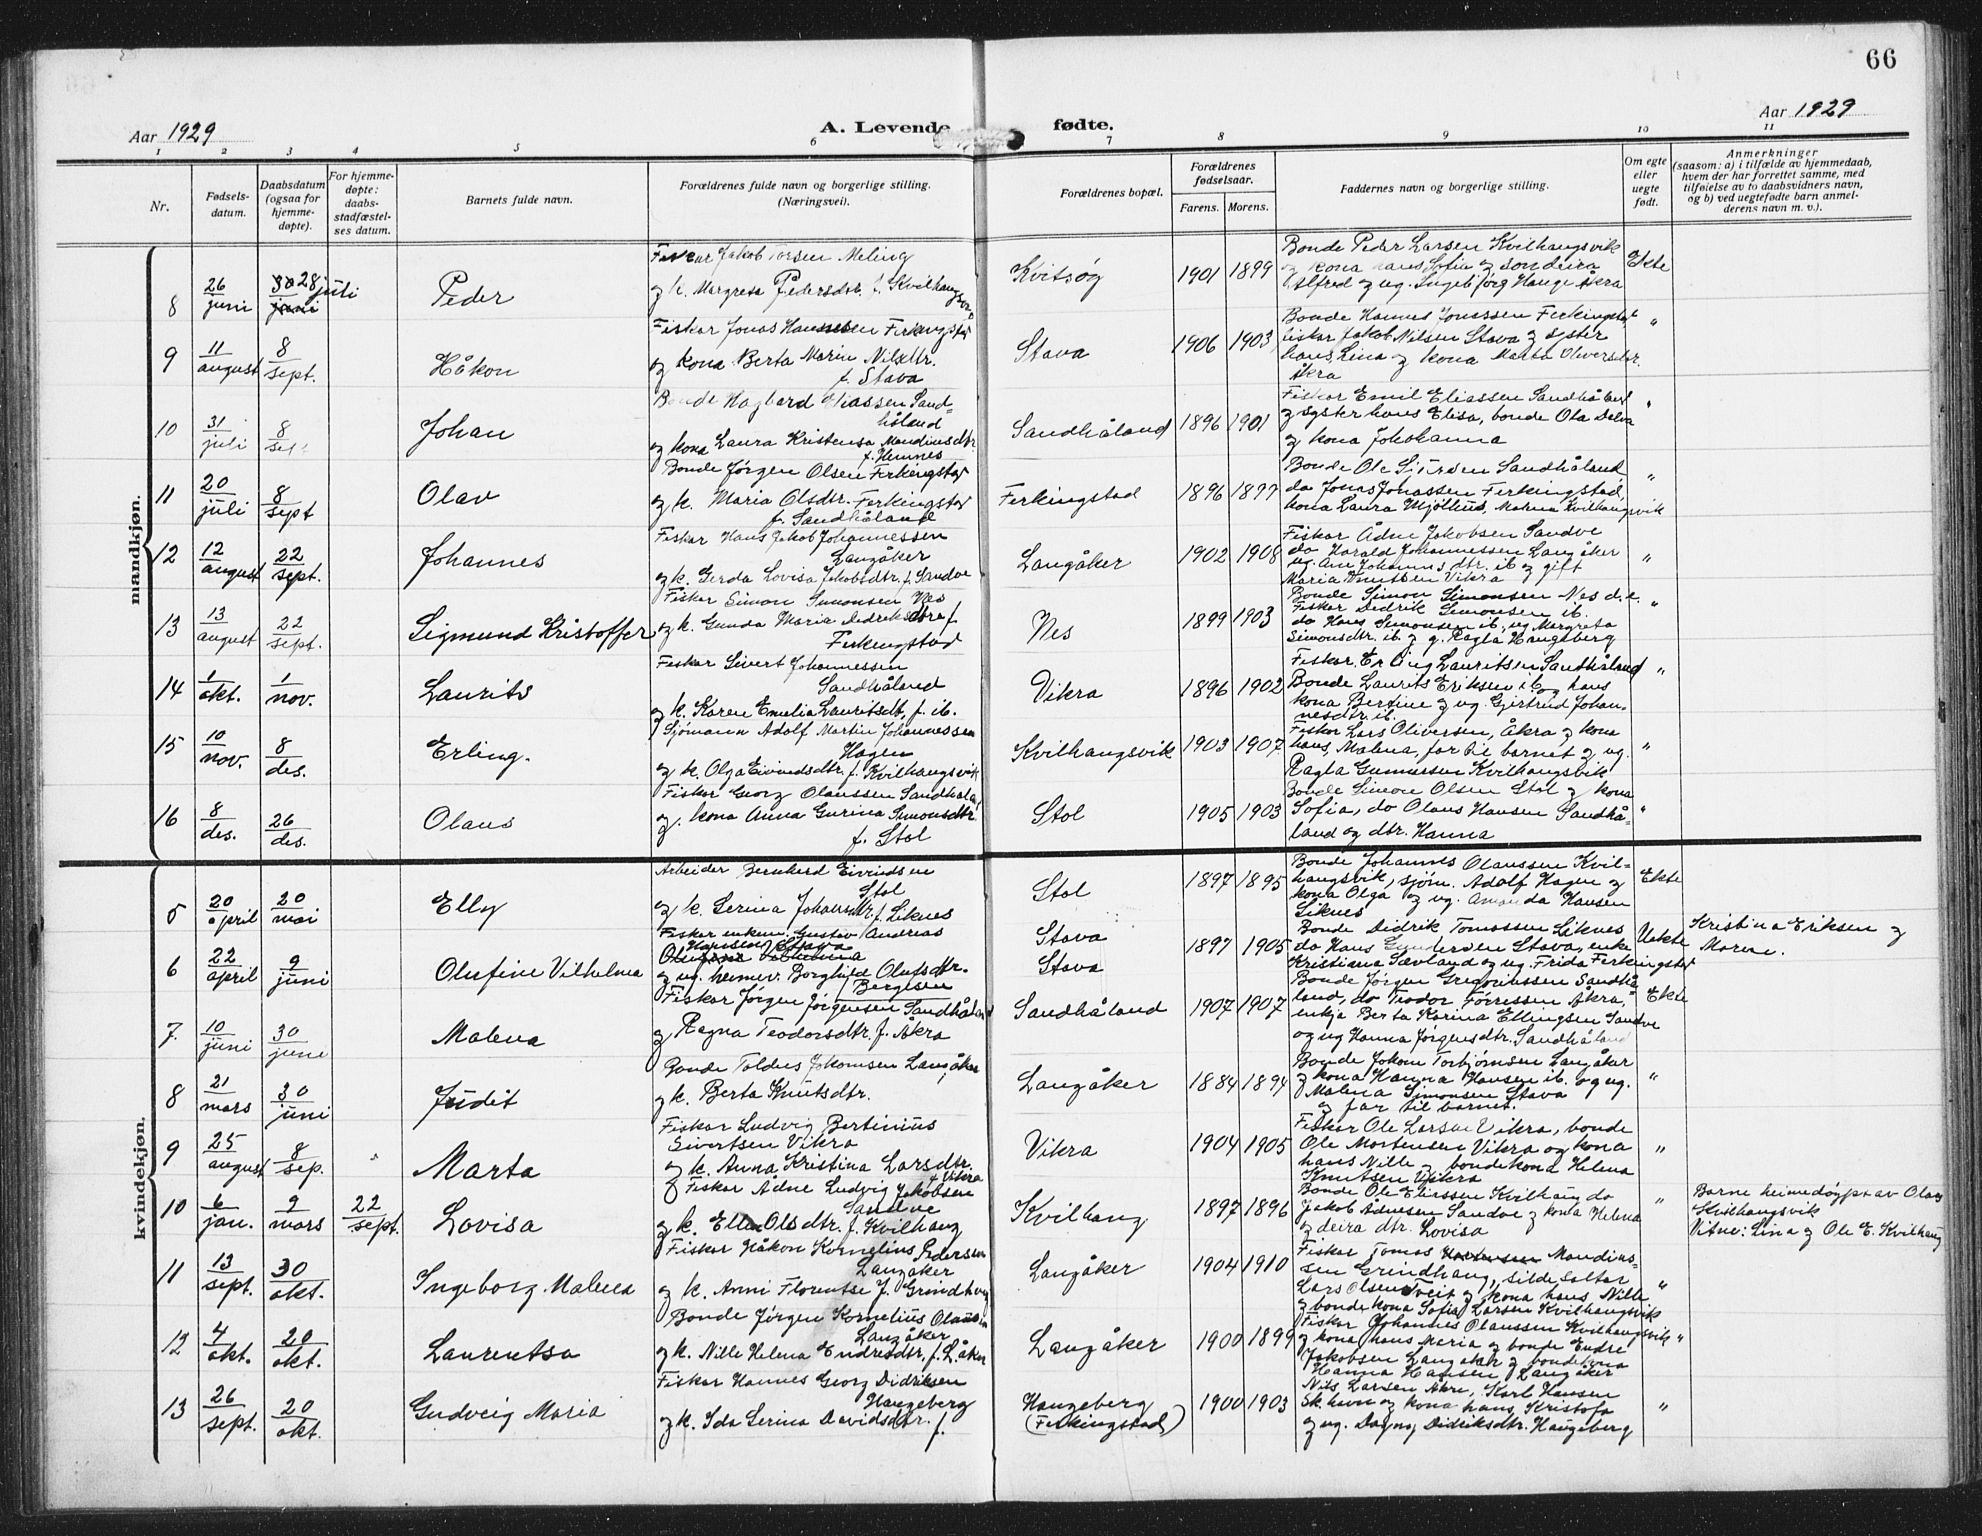 66
Aar 1929
A. Levende fødte.
Aar 1929
1 2 3 4 5 6 7 8 9 10 11
Nr.
Fødsels-
datum.
Daabsdatum
(ogsaa for
hjemme-
døpte).
For hjemme-
døpte:
daabs-
stadfæstel-
ses datum.
Barnets fulde navn.
Forældrenes fulde navn og borgerlige stilling.
(Næringsvei).
Forældrenes bopæl.
Forældrenes
fødselsaar.
Farens. Morens.
Faddernes navn og borgerlige stilling.
Om egte
eller
uegte
født.
Anmerkninger
(saasom: a) i tilfælde av hjemmedaab,
hvem der har forrettet samme, med
tilføielse av to daabsvidners navn,
og b) ved uegtefødte barn anmel-
derens navn m. v.).
mandkjøn.
8
26
juni
30 28 juli
juni
Peder
Fiskar Jakob Torsen Meling
og k. Margreta Pedersdtr. f. Kvilhaugsvik
Kvitsøy
1901 1899
Bonde Peder Larsen Kvilhaugsvik
og kona hans Sofie og son deira
Alfred og ug. Ingebjørg Hauge Åkra
Ekte
9
11
august
8
sept.
Håkon
Fiskar Jonas Hannessen Ferkingstad
og kona Berta Marie Nilsdtr.
f. Stava
Stava
1906 1903
Bonde Hannes Jonassen Ferkingstad
fiskar Jakob Nilsen Stava og syster
hans Lina og kona Marta Oliversdtr.
Åkra
"
10
31
juli
8
sept
Johan
Bonde Hagbard Eliassen Sand=
håland
og kona Laura Kristensa Mandiusdtr
f. Hemnes
Sandhåland
1896 1901
Fiskar Emil Eliassen Sandhåland
og syster hans Elisa, bonde Ola
og kona Johohanna
"
11
20
juli
8
sept
Olav
Bonde Jørgen Olsen Ferkingstad
og k. Maria Olsdtr. Ferkingstad
f. Sandhåland
Ferkingstad
1896 1897
Bonde Ole Sandhåland
do Jonas Jonassen Ferkingstad,
kona Laura Mjølhus, Malena Kvilhaugsvik
"
12
12
august
22
sept.
Johannes
Fiskar Hans Jakob Johannessen
Langåker
og k. Gerda Lovisa Jakobsdtr. f. Sandve
Langåker
1902 1908
Fiskar Ådne Jakobsen Sandve
do Harald Johannessen Langåker
ug. Ann Johannesdtr. ib og gift
Maria Knutsen Vikra
"
13
13
august
22
sept.
Sigmund Kristoffer
Fiskar Simon Simonsen Nes
og k. Gunda Maria Didriksdtr f
Ferkingstad
Nes
1899 1903
Bonde Simon Simonsen Nes d.e.
Fiskar Didrik Simonsen ib.
do Hans Simonsen ib, ug Margreta
Simonsdtr. ib og g. Ragla Haugeberg
"
14
1
okt.
1
nov.
Laurits
Fiskar Sivert Johannessen
Sandhåland
og k. Karen Emelia Lauritsdt, f. ib.
Vikra
1896 1902
Fiskar Erling Lauritsen Sandhåland
Bonde Laurits Eriksen ib og hans
kona Bertine og ug. Gjertrud Johan-
nesdtr. ib.
"
15
10
nov.
8
des.
Erling.
Sjømann Adolf Martin Johannessen
Hagen
og k. Olga Eivindsdtr. f. Kvilhaugsvik
Kvilhaugsvik
1903 1907
Fiskar Lars Oliversen, Åkra og kona
hans, Malena, far til barnet og ug.
Ragla Gunnarsen Kvilhaugsvik
"
16
8
des.
26
des.
Olaus
Fiskar Georg Olaussen Sandhåland
og. kona Anna Gurina Simonsdtr
f. Stol
Stol
1905 1903
Bonde Simon Olsen Stol og kona
Sofia, do Olaus Hansen Sandhå-
land og dtr. Hanna
"
kvindekjøn.
5
20
april
20
mai
Elly
Arbeider Bernhard Eivindsen
Stol
og k. Serina Johansdtr. f. Liknes
Stol
1897 1895
Bonde Johannes Olaussen Kvil-
haugsvik, sjøm. Adolf Hagen og
kona Olga og ug. Amanda Hansen
Liknes
Ekte
6
22
april
9
juni
Olufine Vilhelma
Fiskar enkem. Gustav Andreas
Hansen Stava
Olufine Vilhelma
og ug. heimev. Borghild Olufsdtr.
Bergesen
Stava
Stava
1897 1905
Bonde Didrik Tomassen Liknes
do Hans Gundersen Stava, enke
Kristiana Sævland og ug. Frida Ferkingstad
Uekte
Kristina Eriksen og
Moren.
7.
10
juni
30
juni
Malena
Fiskar Jørgen Jørgensen Sandhåland
og Ragna Teodorsdtr. f. Åkra
Sandhåland
1907 1907
Bonde Jørgen Gregoriussen Sandhå
land, do Teodor Førressen Åkra,
enkja Berta Karina Ellingsen Sandve
og ug Hanna Jørgensdtr. Sandhåland
Ekte
8
21
mars
30
juni
Judit
Bonde Toldnes Johannsen Langåker
og k. Berta Knutsdtr.
Langåker
1884 1894
Bonde Johan Torbjørnsen Langåker
og kona Hanna Hansen ib. og ug.
Malena Simonsen Stava
og far til barnet.
"
9
25
august
8
sep.
"
Marta
Fiskar Ludvig Bertinius
Sivertsen Vikra
og k. Anna Kristina Larsdtr.
f. Vikra
Vikra
1904 1905
Fiskar Ole Larsen Vikra, bonde
Ole Mortensen Vikra og kona
hans Nille og bondekona Helena
Knutsen Vikra
"
10
6
jan.
9
mars
22
sept.
Lovisa
Fiskar Ådne Ludvig Jakobsen
Sandve
og k. Ellen Olsdtr. f. Kvilhaug
Kvilhaug
1897 1896
Bonde Ole Eliassen Kvilhaug do
Jakob Ådnesen Sandve og kona Helena
og deira dtr. Lovisa
"
Barne heimedøypt av Olaus
Kvilhaugsvik
Vitne: Lina og Ole E. Kvilhaug
11
13
sept.
30
okt.
Ingeborg Malena
Fiskar Håkon Kornelius Pedersen
Langåker
og k. Anni Florentse f. Grindhaug
Langåker
1904 1910
Fiskar Tomas Mandius-
sen Grindhaug, sildesaltar
Lars Olsen Tveit og kona hans Nille
og bondekona Sofia Larsen Kvilhaugsvik
"
12
4
okt.
20
okt.
Laurentse
Bonde Jørgen Kornelius Olaussen
Langåker
og k. Nille Helena Endresdtr. f. L.åker
Langåker
1900 1899
Fiskar Johannes Olaussen Kvilhaugsvik
og kona hans Maria og bonde Endre
Jakobsen Langåker og bondekona
Hanna Hansen Langåker
"
13
26
sept.
20
okt.
Gudveig Maria
Fiskar Hannes Georg Didriksen
Haugeberg
og k. Ida Serina Davidsdtr. f.
Haugeberg
(Ferkingstad)
1900 1903
Nils Larsen Åkre, Karl Hansen
Sk.havn og kona hans Kristofa
og ug. Dagny Didriksdtr. Haugeberg
"